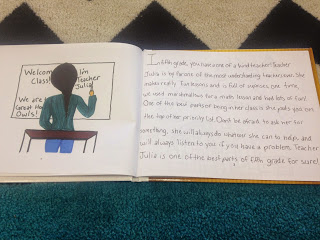 Welcome
Class!
I'm
Teacher
Julia
We are
Great Horned
Owls!
In fifth grade, you have one of a kind teacher! Teacher
Julia is by far one of the most understanding teachers ever. She
makes really fun lessons and is full of surprises, one time,
we used marshmallows for a math lesson and had lots of fun!
One of the best parts of being in her class is she puts you on
the top of her priority list. Don't be afraid to ask her for
something, she will always do whatever she can to help, and
will always listen to you if you have a problem. Teacher
Julia is one of the best parts of fifth grade for sure!